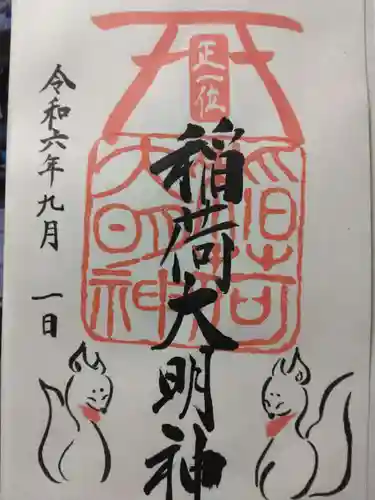 正一位
稲荷大明神
稲荷大明神
令和六年九月 一日